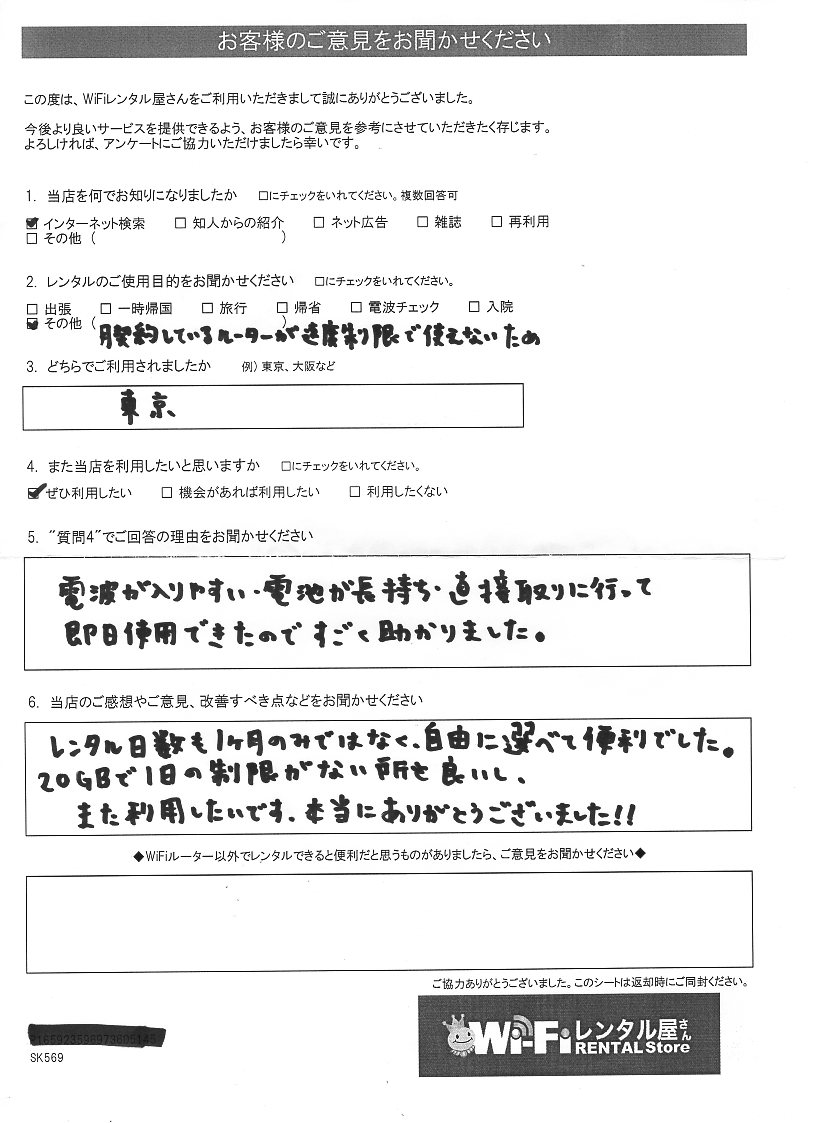 お客様のご意見をお聞かせください
この度は、WiFiレンタル屋さんをご利用いただきまして誠にありがとうございました。
今後より良いサービスを提供できるよう、お客様のご意見を参考にさせていただきたく存じます。
よろしければ、アンケートにご協力いただけましたら幸いです。
1. 当店を何でお知りになりましたか □にチェックをいれてください。複数回答可
☑ インターネット検索 □ 知人からの紹介 □ ネット広告 □ 雑誌 □ 再利用
□ その他 ( )
2. レンタルのご使用目的をお聞かせください □にチェックをいれてください。
□ 出張 □ 一時帰国 □ 旅行 □ 帰省 □ 電波チェック □ 入院
☑ その他 ( )
月契約しているルーターが速度制限で使えないため
3. どちらでご利用されましたか 例) 東京、大阪など
東京、
4. また当店を利用したいと思いますか □にチェックをいれてください。
☑ ぜひ利用したい □ 機会があれば利用したい □ 利用したくない
5. "質問4"でご回答の理由をお聞かせください
電波が入りやすい・電池が長持ち・直接取りに行って
即日使用できたのですごく助かりました。
6. 当店のご感想やご意見、改善すべき点などをお聞かせください
レンタル日数も1ヶ月のみではなく、自由に選べて便利でした。
20GBで1日の制限がない所も良いし、
また利用したいです、本当にありがとうございました!!
◆WiFiルーター以外でレンタルできると便利だと思うものがありましたら、ご意見をお聞かせください◆
ご協力ありがとうございました。このシートは返却時にご同封ください。
Wi-Fiレンタル屋さん
RENTAL Store
SK569